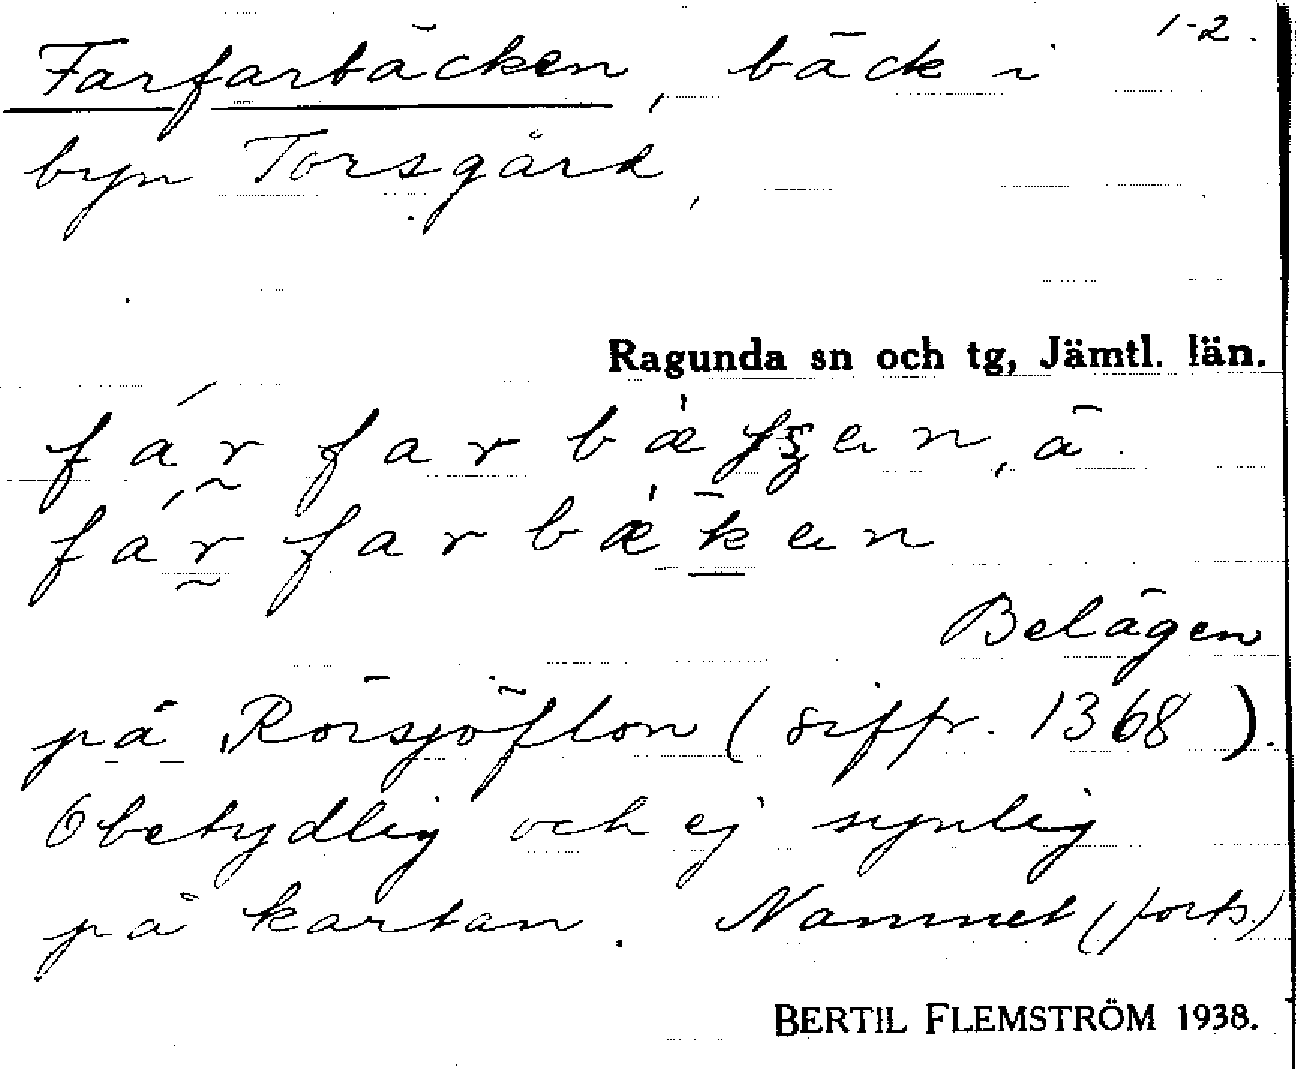 1-2.
Farfarbäcken, bäck i
byn Torsgård,
Ragunda sn och tg, Jämtl. län.
fár far bæ̍ en, ä
fár̰ far bæ̍k̄en
Belägen
på Rörsjöflon (siffr. 1368).
Obetydlig och ej synlig
på kartan. Namnet (forts.)
BERTIL FLEMSTRÖM 1938.